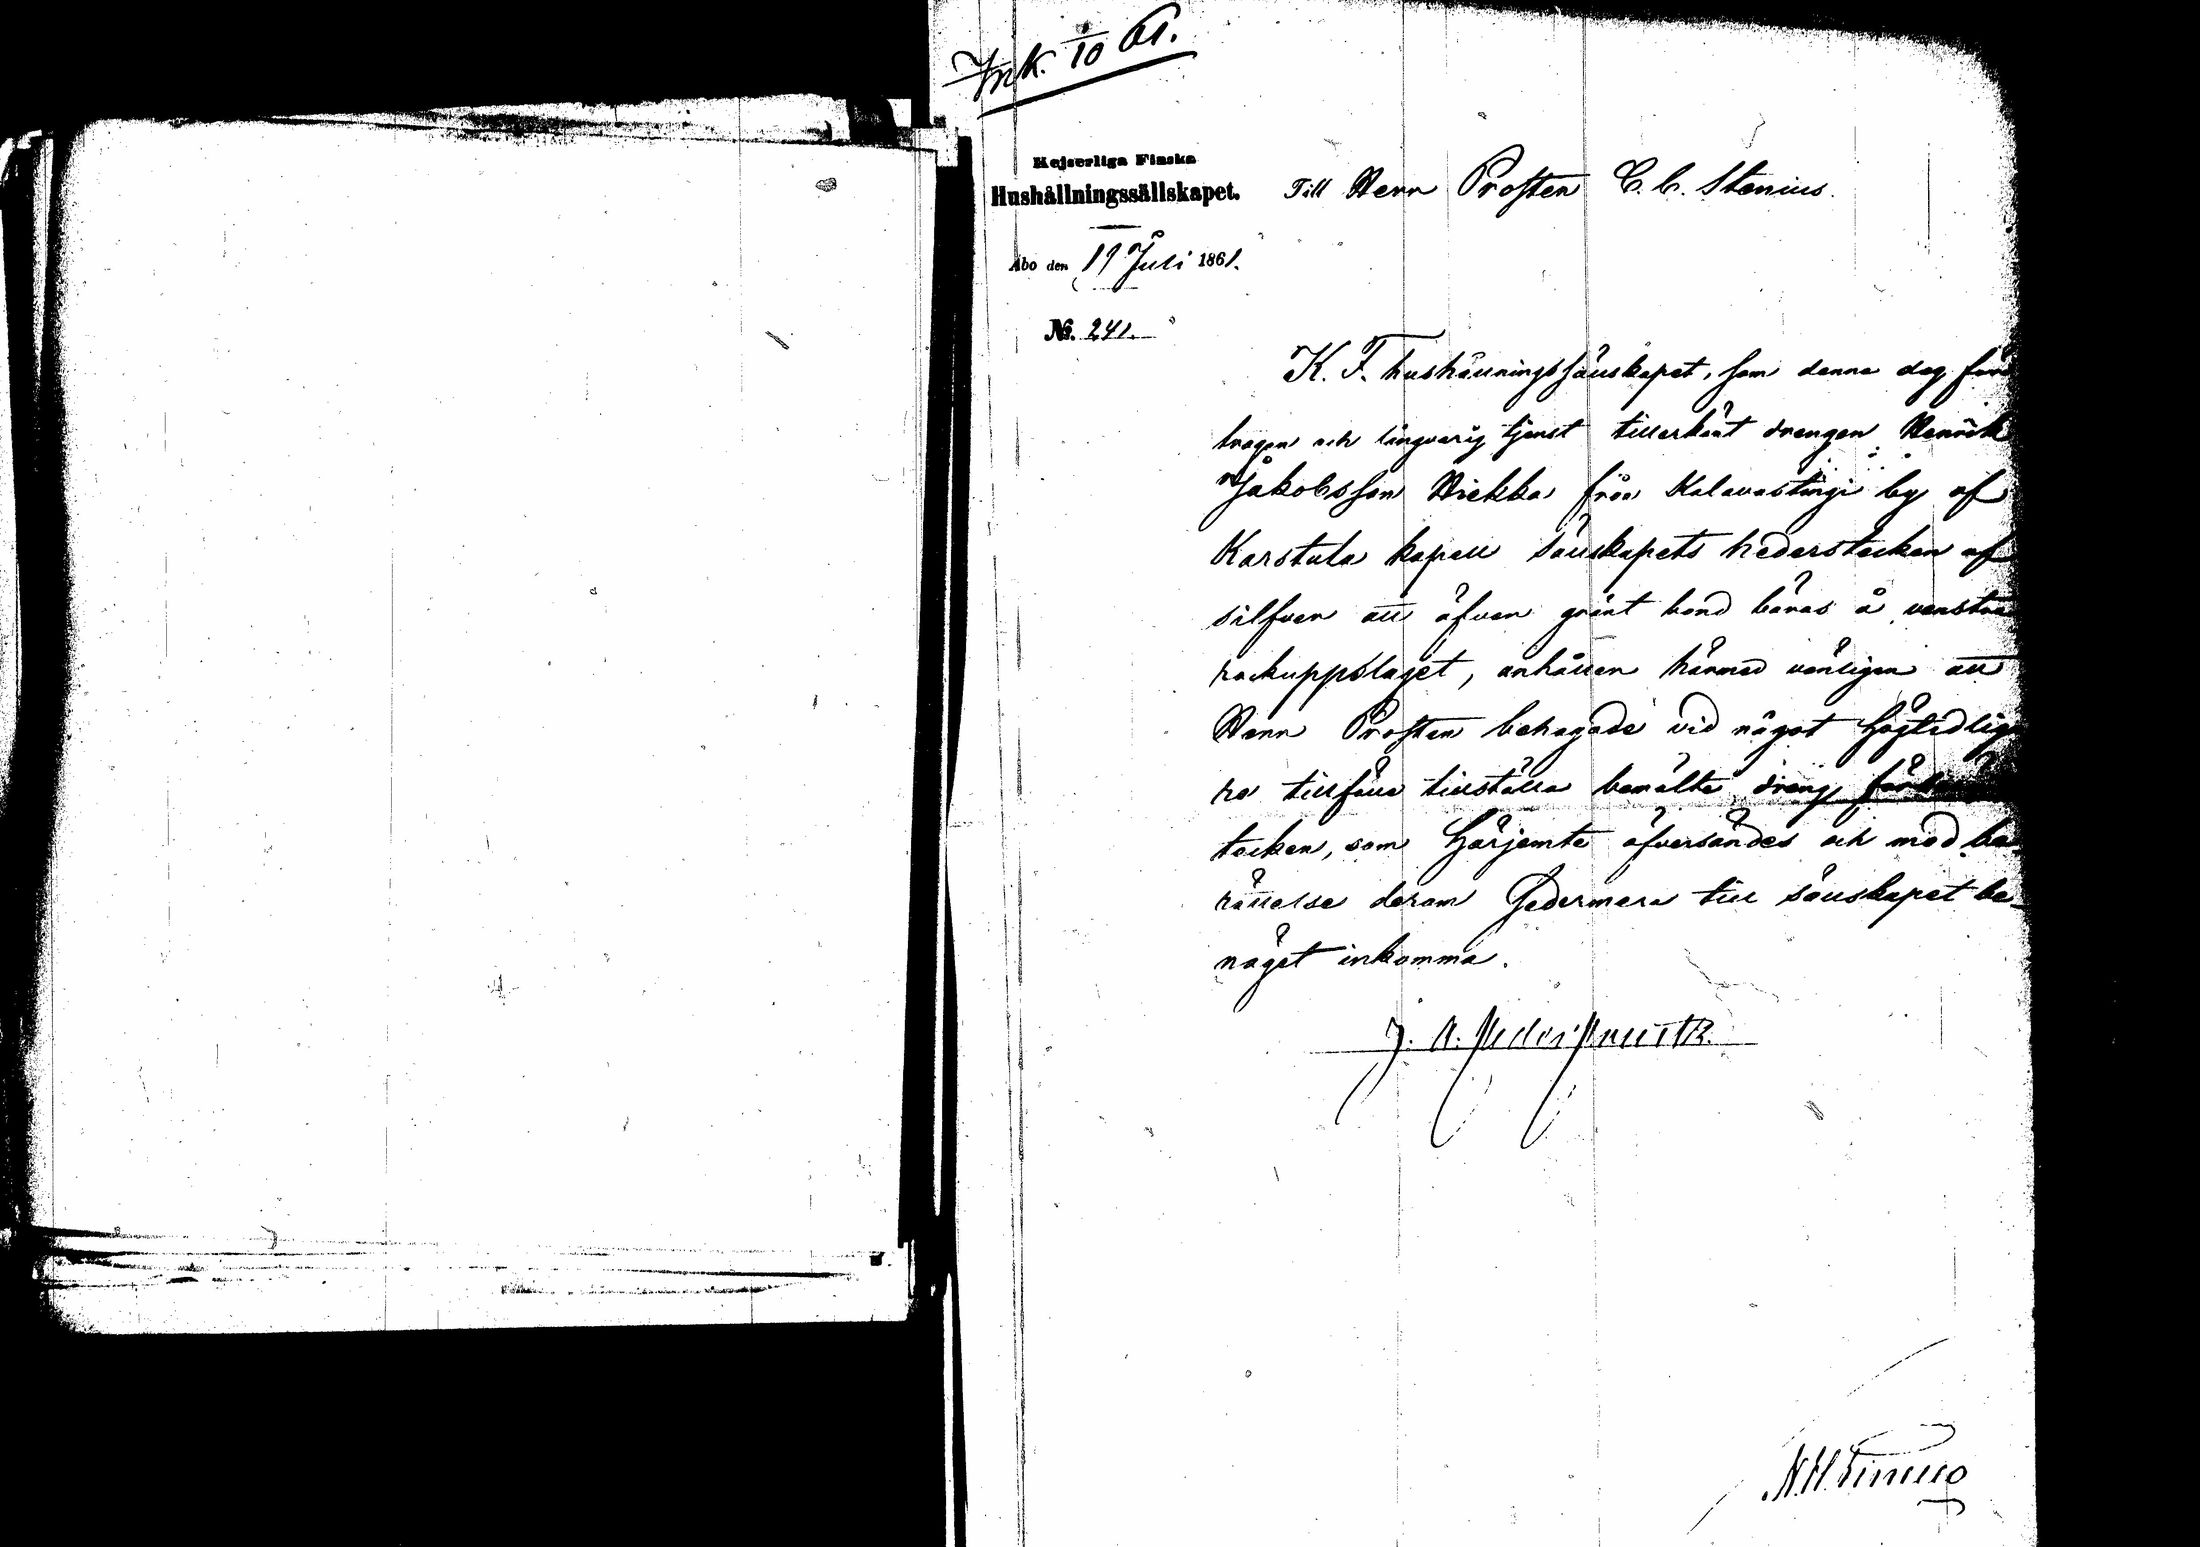 Ink. /10 61.
Kejserliga Finska
Hushållningssällskapet.
Till Herr Prosten C. C. Stenius.
Åbo den 19 Juli 1861.
No. 241.
K. F. hushållningssällskapet, som denna dag för
trogen och långvarig tjenst tillerkänt drengen Henrik
Jakobsson Hiekka från Kalavastingi by af
Karstula kapell sällskapets hederstecken af
silfver att öfver grönt band bäras å venstra
rockuppslaget, anhåller härmed vänligen att
Herr Prosten behagade vid något högtidliga
re tillfälle tillställa bemälte dreng
tecken, som härjemte öfversändes och med be-
rättelse derom sedermera till sällskapet be-
näget inkomma.